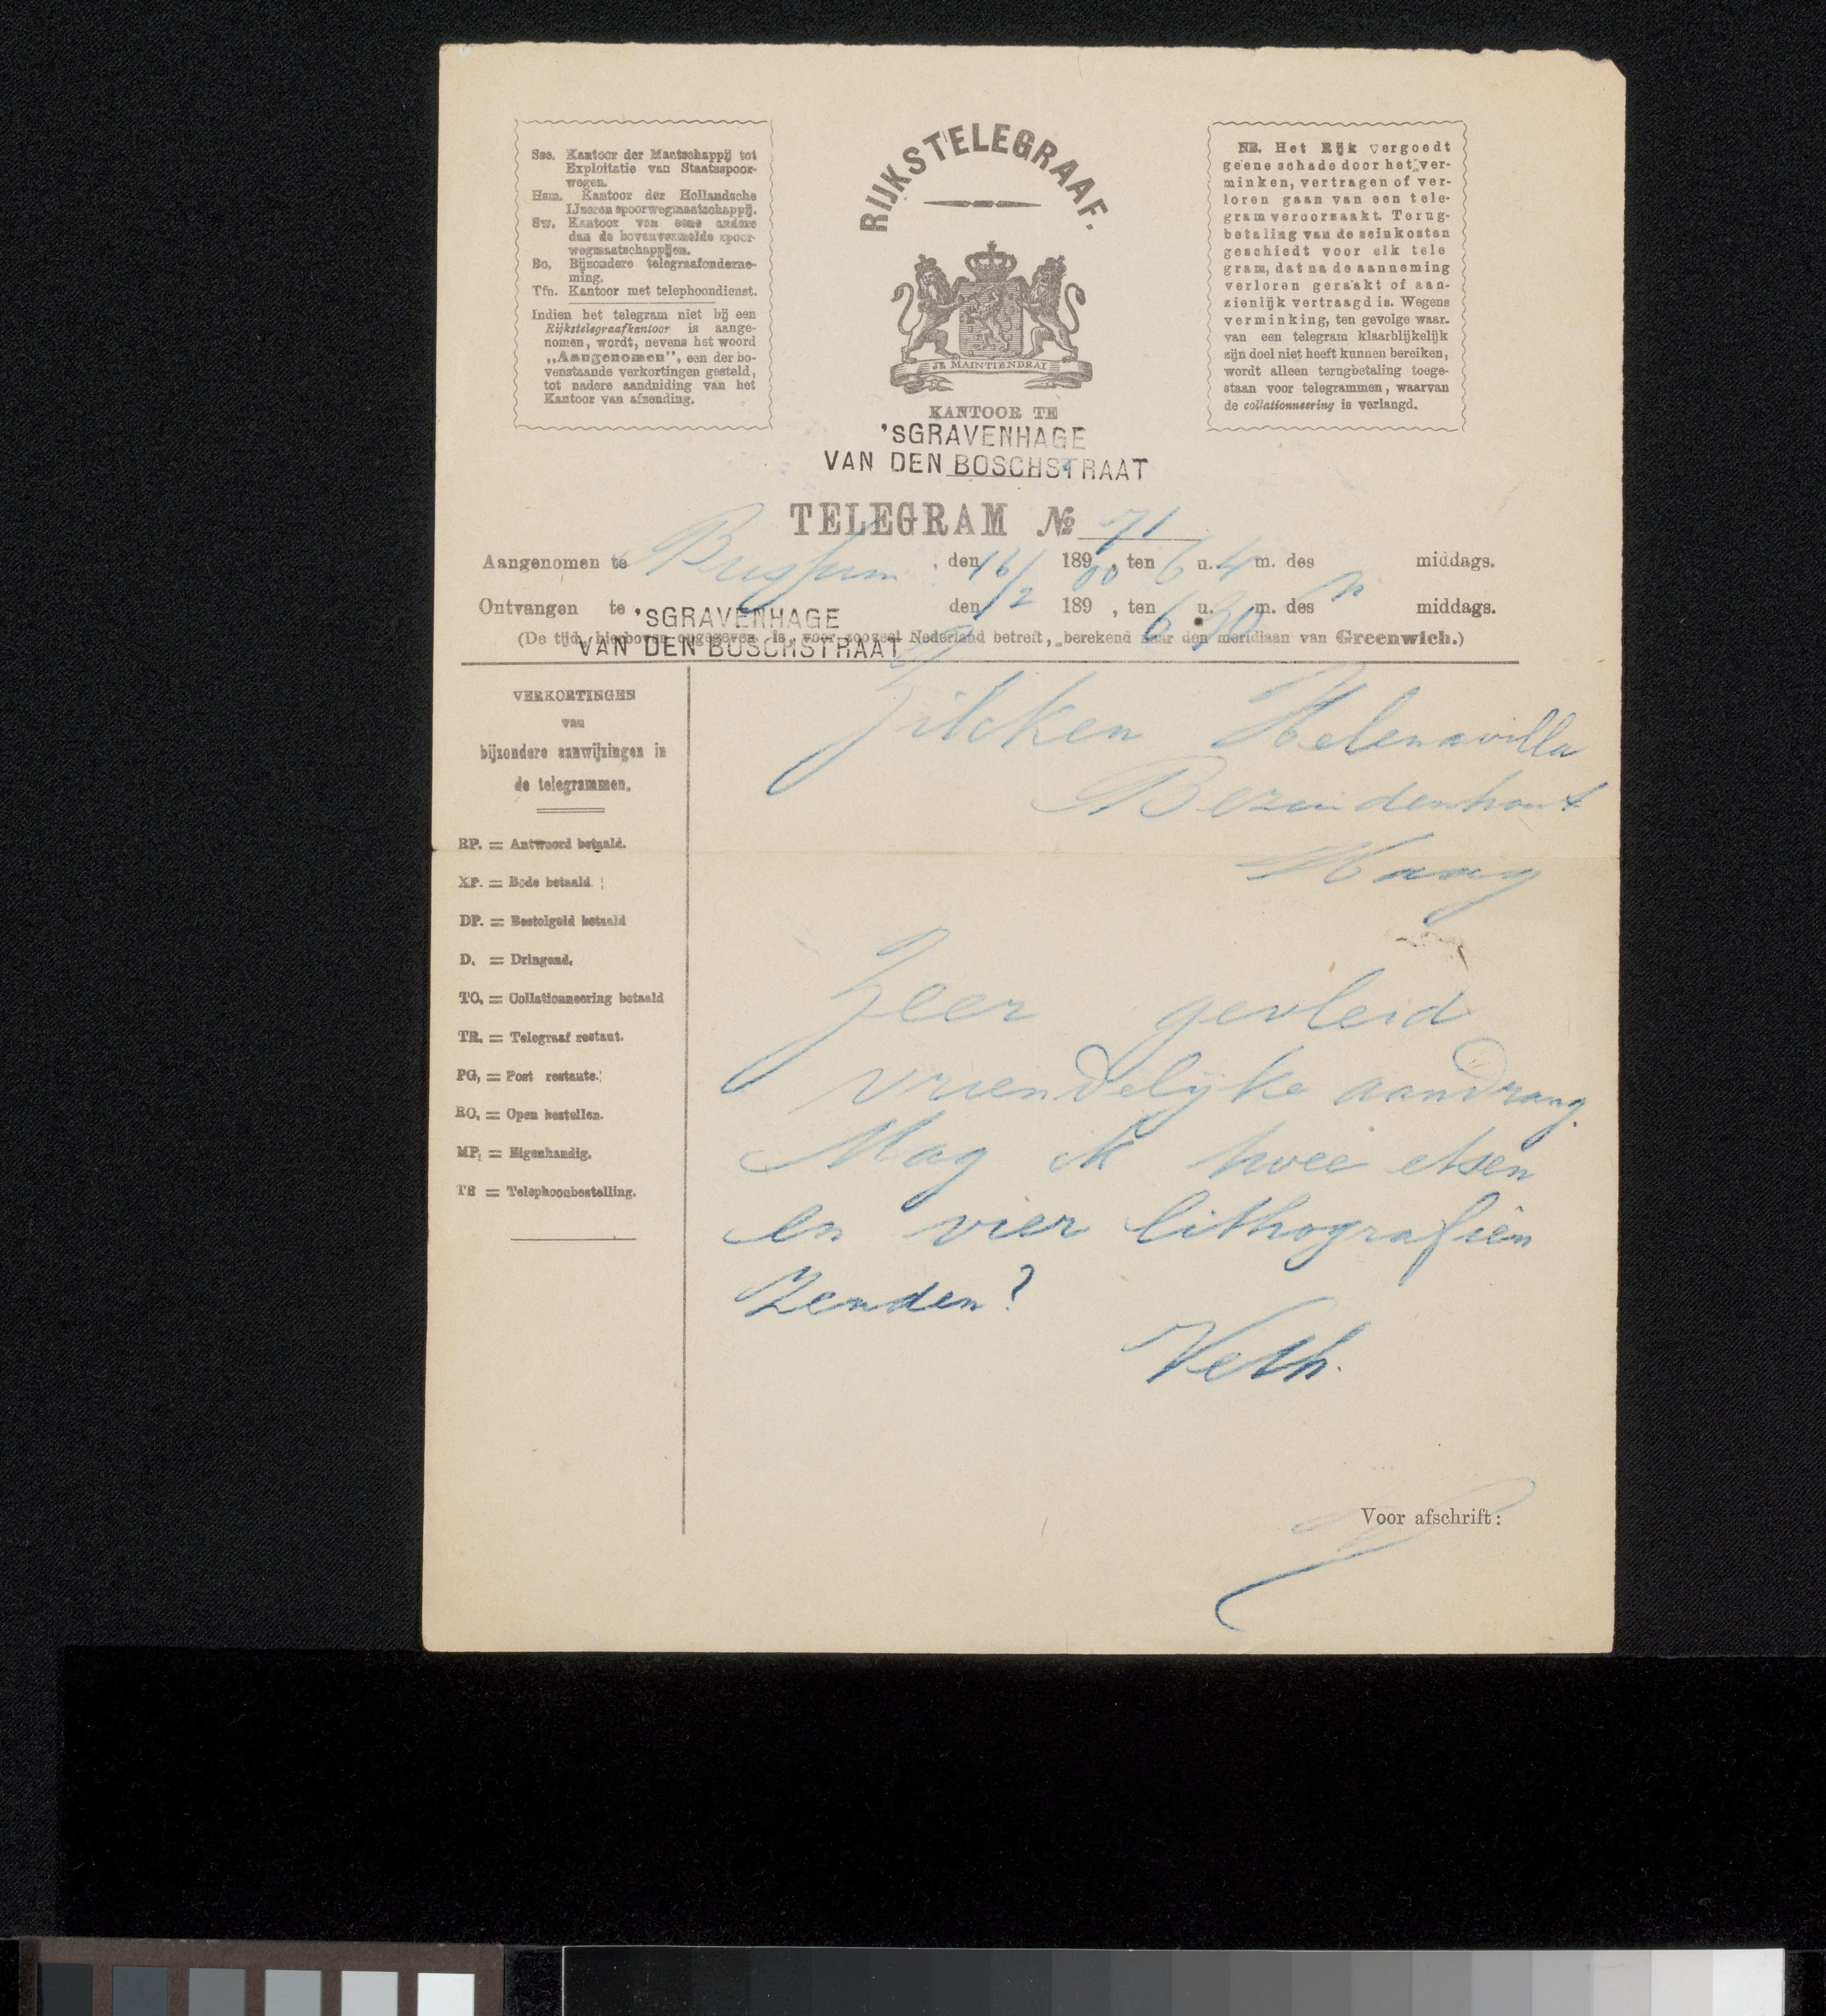 Sse. Kantoor der Maatschappij tot
Exploitatie van Staatsspoor-
wegen.
Hsm. Kantoor der Hollandsche
IJzeren spoorwegmaatschappij.
Sw. Kantoor van eene andere
dan de bovenvermelde spoor-
wegmaatschappijen.
Bo. Bijzondere telegraafonderne-
ming.
Tfn. Kantoor met telephoondienst.
Indien het telegram niet bij een
Rijkstelegraafkantoor is aange-
nomen, wordt, nevens het woord
„Aangenomen", een der bo-
venstaande verkortingen gesteld,
tot nadere aanduiding van het
Kantoor van afzending.
RIJKSTELEGRAAF.
JE MAINTIENDRAI
KANTOOR TE
'SGRAVENHAGE
VAN DEN BOSCHSTRAAT
NB. Het Rijk vergoedt
geene schade door het ver-
minken, vertragen of ver-
loren gaan van een tele-
gram veroorzaakt. Terug-
betaling van de seinkosten
geschiedt voor elk tele
gram, dat na de aanneming
verloren geraakt of aan-
zienlijk vertraagd is. Wegens
verminking, ten gevolge waar-
van een telegram klaarblijkelijk
zijn doel niet heeft kunnen bereiken,
wordt alleen terugbetaling toege-
staan voor telegrammen, waarvan
de collationneering is verlangd.
TELEGRAM No 71
Aangenomen te Bussum, den 16/2 189 00 ten 6 u. 4 m. des middags.
Ontvangen te 'SGRAVENHAGE den 189 , ten 6 u. 30 m. des n middags.
(De tijd, hierboven opgegeven is, voor zooveel Nederland betreft, berekend naar den meridiaan van Greenwich.)
VAN DEN BOSCHSTRAAT
VERKORTINGEN
van
bijzondere aanwijzingen in
de telegrammen.
RP. = Antwoord betaald.
XP. = Bode betaald
DP. = Bestelgeld betaald
D. = Dringend.
TC, = Collationneering betaald
TR. = Telegraaf restant.
PG, = Post restante.
RO, = Open bestellen.
MP, = Eigenhandig.
TB = Telephoonbestelling.
Zilcken Helenavilla
Bezuidenhout
Haag
Zeer gevleid
vriendelijke aandrang.
Mag ik twee etsen
en vier lithografiën
zenden?
Veth.
Voor afschrift: